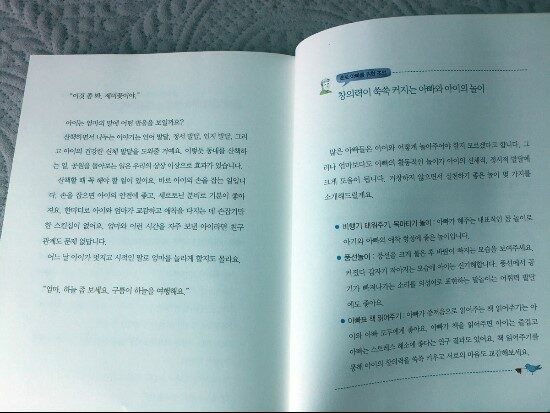 "이것 좀 봐, 제비꽃이야."
아이는 엄마의 말에 어떤 반응을 보일까요?
산책하면서 나누는 이야기는 언어 발달, 정서 발달, 인지 발달, 그리
고 아이의 건강한 신체 발달을 도와줄 거예요. 이렇듯 동네를 산책하
는 일, 공원을 돌아보는 일은 우리의 상상 이상으로 효과가 있습니다.
산책할 때 꼭 해야 할 일이 있어요. 바로 아이의 손을 잡는 일입니
다. 손을 잡으면 아이의 안전에 좋고, 세로토닌 분비로 기분이 좋아
져요. 한마디로 아이와 엄마가 교감하고 애착을 다지는 데 손잡기만
한 스킨십이 없어요. 엄마와 이런 시간을 자주 보낸 아이라면 친구
관계도 문제 없답니다.
어느 날 아이가 멋지고 시적인 말로 엄마를 놀라게 할지도 몰라요.
"엄마, 하늘 좀 보세요. 구름이 하늘을 여행해요."
초보 아빠를 위한 조언
창의력이 쑥쑥 커지는 아빠와 아이의 놀이
많은 아빠들은 아이와 어떻게 놀아주어야 할지 모르겠다고 합니다. 그
러나 엄마보다도 아빠의 활동적인 놀이가 아이의 신체적, 정서적 발달에
크게 도움이 됩니다. 거창하지 않으면서 실천하기 좋은 놀이 몇 가지를
소개해드릴게요.
● 비행기 태워주기, 목마타기 놀이 : 아빠가 해주는 대표적인 몸 놀이로
아기와 아빠의 애착 형성에 좋은 놀이입니다.
● 풍선놀이 : 풍선을 크게 불은 후 바람이 빠지는 모습을 보여주세요.
커졌다 갑자기 작아지는 모습에 아이는 신기해합니다. 풍선에서 공
기가 빠져나가는 소리를 의성어로 표현하는 말놀이는 어휘력 발달
에도 좋아요.
● 아빠표 책 읽어주기 : 아빠가 중저음으로 읽어주는 책 읽어주기는 아
이와 아빠 모두에게 좋아요. 아빠가 책을 읽어주면 아이는 즐겁고
아빠는 스트레스 해소에 좋다는 연구 결과도 있어요. 책 읽어주기를
통해 아이의 창의력을 쑥쑥 키우고 서로의 마음도 교감해보세요.